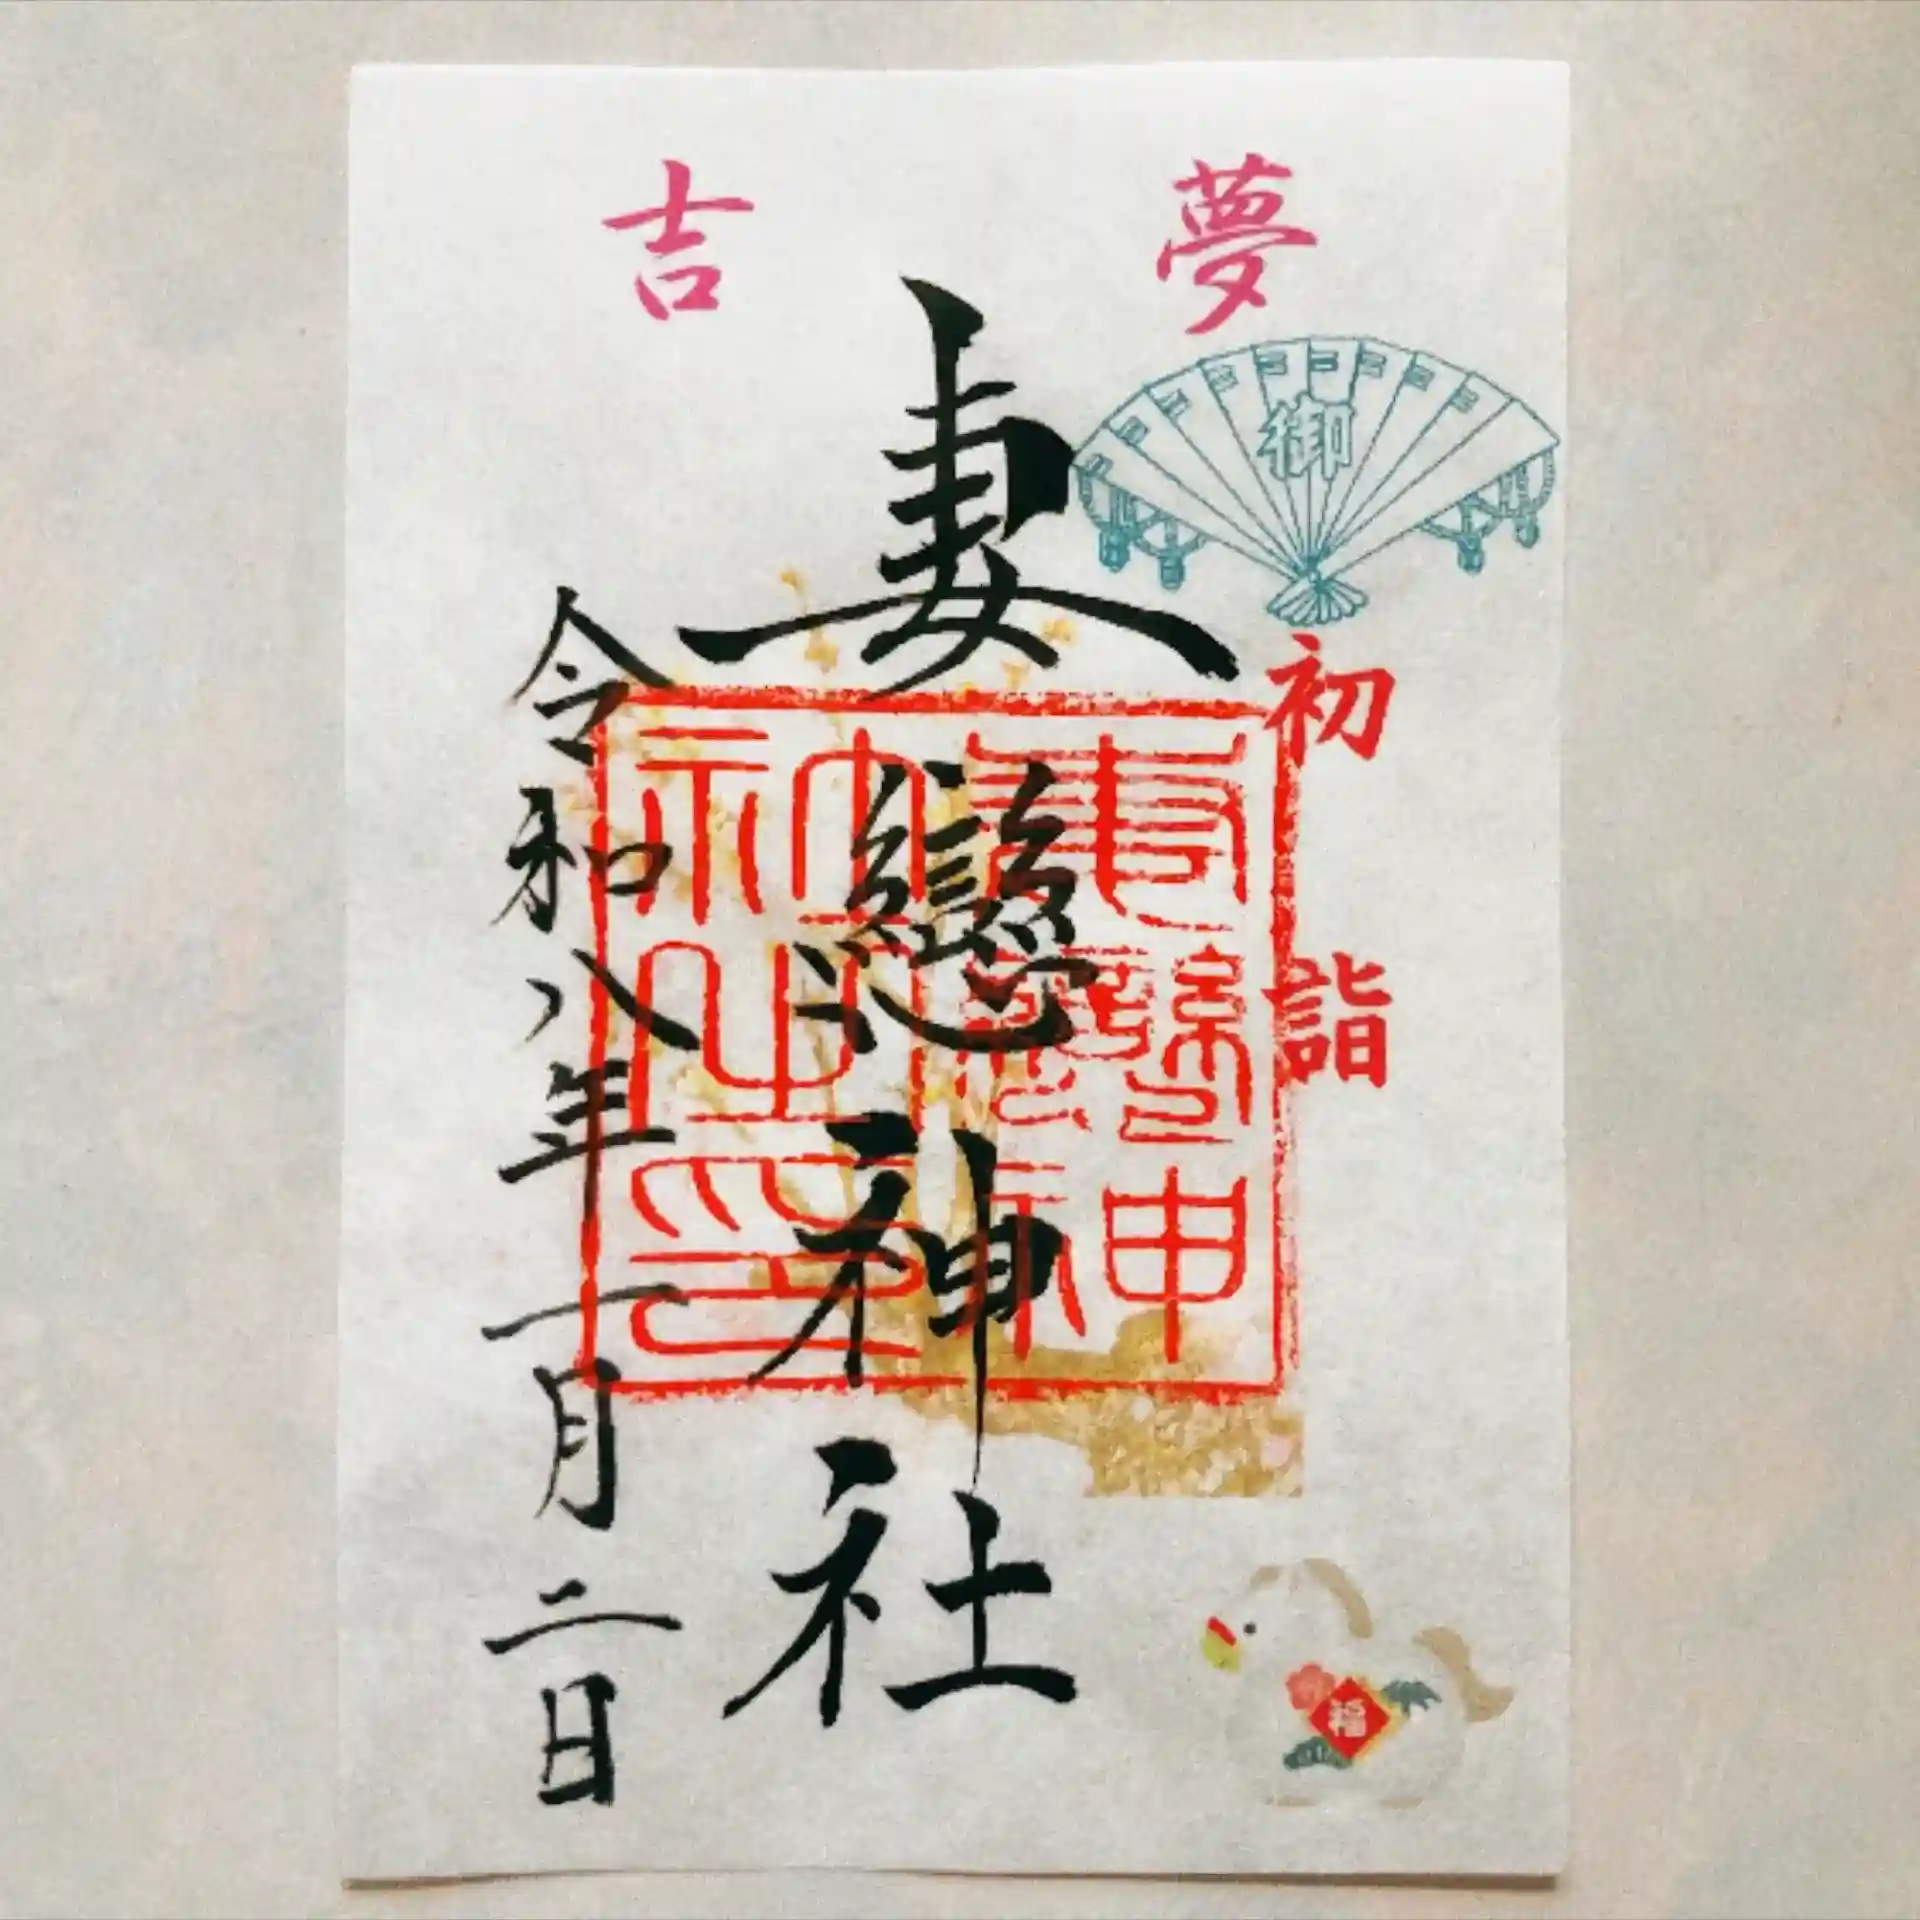 吉夢
御
初詣
妻戀神社
妻戀神
社之印
令和八年一月二日
福